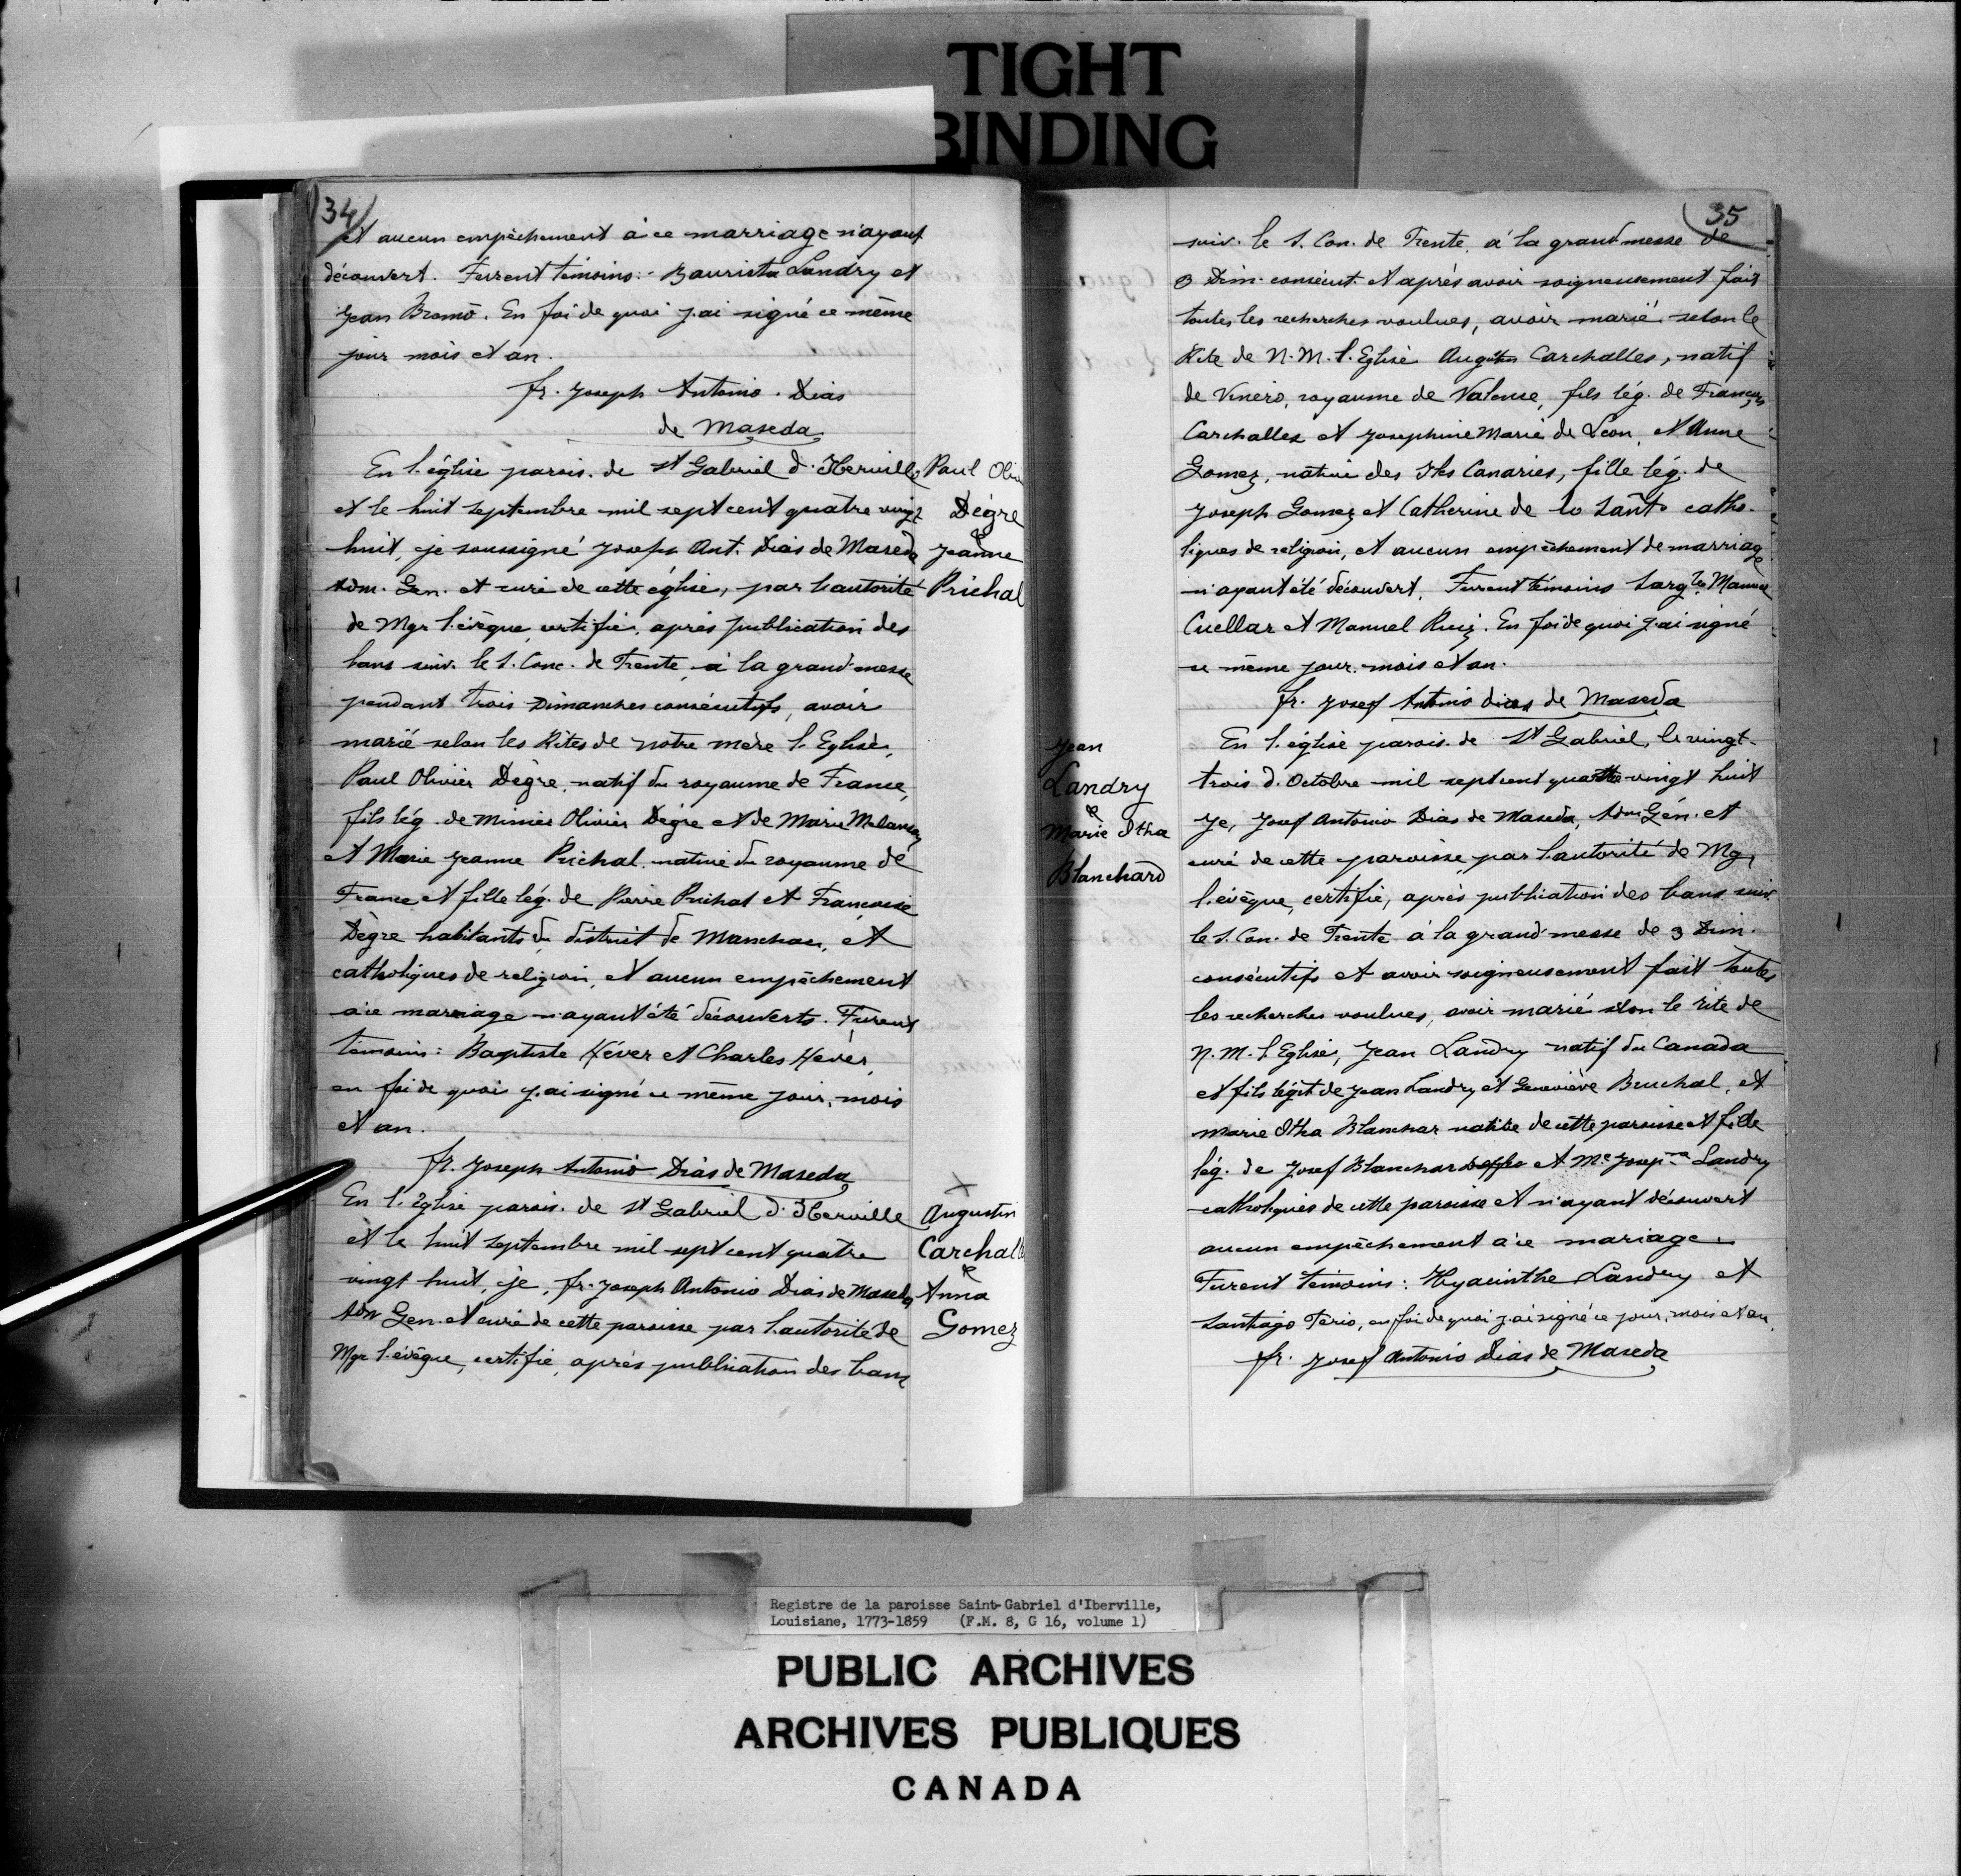 TIGHT
BINDING
34
et aucun empêchement à ce marriage n'ayant
découvert. Furrent témoins:- Baurista Landry et
Jean Bromo. En foi de quoi j'ai signé ce même
jour mois et an.
fr. Joseph Antonio. Dias
de Maseda
En l'église parois. de St Gabriel d'Iberville
et le huit septembre mil sept cent quatre vingt
huit, je soussigné Joseph Ant. Dias de Maseda
Adm. Gen. et curé de cette église, par l'autorité
de Mgr l'évêque, certifie, après publication des
bans suiv. le S. Conc. de Trente, à la grand'messe
pendant trois Dimanches consécutifs, avoir
marié selon les Rites de notre mère l'Eglise,
Paul Olivier Dègre, natif du royaume de France,
fils lég. de Olivier Dègre et de Marie Melançon
et Marie Jeanne Prichal native du royaume de
France et fille lég. de Pierre Prichal et Françoise
Dègre habitants du district de Manchac, et
catholiques de religion, et aucun empêchement
à ce mariage n'ayant été découverts. Furent
témoins: Baptiste Héver et Charles Hever,
en foi de quoi j'ai signé ce même jour, mois
et an.
fr. Joseph Antonio Dias de Maseda
En l'Eglise parois. de St Gabriel d'Iberville
et le huit septembre mil sept cent quatre
vingt huit, je, fr. Joseph Antonio Dias de Maseda
Adm Gen. et curé de cette paroisse par l'autorité de
Mgr l'évêque, certifie, après publication des bans
Paul Oliv
Dègre
&
Jeanne
Prichal
X
Augustin
Carchall
&
Anna
Gomez
35
suiv. le S. Con. de Trente, à la grand'messe de
3 Dim. consécut. et après avoir soigneusement fait
toutes les recherches voulues, avoir marié selon le
Rite de N. M. l'Eglise Carchalles, natif
de Vinero, royaume de Valense, fils lég. de François
Carchalles et Josephine Marie de Leon, et Anne
Gomez, native des Iles Canaries, fille lég. de
Joseph Gomez et Catherine de lo Santo catho-
liques de religion, et aucun empêchement de marriage
n'ayant été découvert. Furent témoins Manuel
Cuellar et Manuel Ruiz. En foi de quoi j'ai signé
ce même jour, mois et an.
fr. Josef Antonio dias de Maseda
Jean
Landry
&
Marie Itha
Blanchard
En l'église parois. de St Gabriel, le vingt-
trois d'Octobre mil sept cent quatre vingt huit
Je, Josef Antonio Dias de Maseda, Adm Gén. et
curé de cette paroisse, par l'autorité de Mgr
l'évêque, certifie, après publication des bans suiv.
le S. Con. de Trente à la grand'messe de 3 Dim.
consécutifs et avoir soigneusement fait toutes
les recherches voulues, avoir marié selon le rite de
N. M. l'Eglise, Jean Landry natif du Canada
et fils légit de Jean Landry et Geneviève Bruchal, et
Marie Itha Blanchar native de cette paroisse et fille
lég. de Josef Blanchar et Me Landry
catholiques de cette paroisse et n'ayant découvert
aucun empêchement à ce mariage.
Furent témoins: Hyacinthe Landry et
Santiago Terio, en foi de quoi j'ai signé ce jour, mois et an.
fr. Josef Antonio Dias de Maseda
Registre de la paroisse Saint-Gabriel d'Iberville,
Louisiane, 1773-1859 (F.M. 8, G 16, volume 1)
PUBLIC ARCHIVES
ARCHIVES PUBLIQUES
CANADA